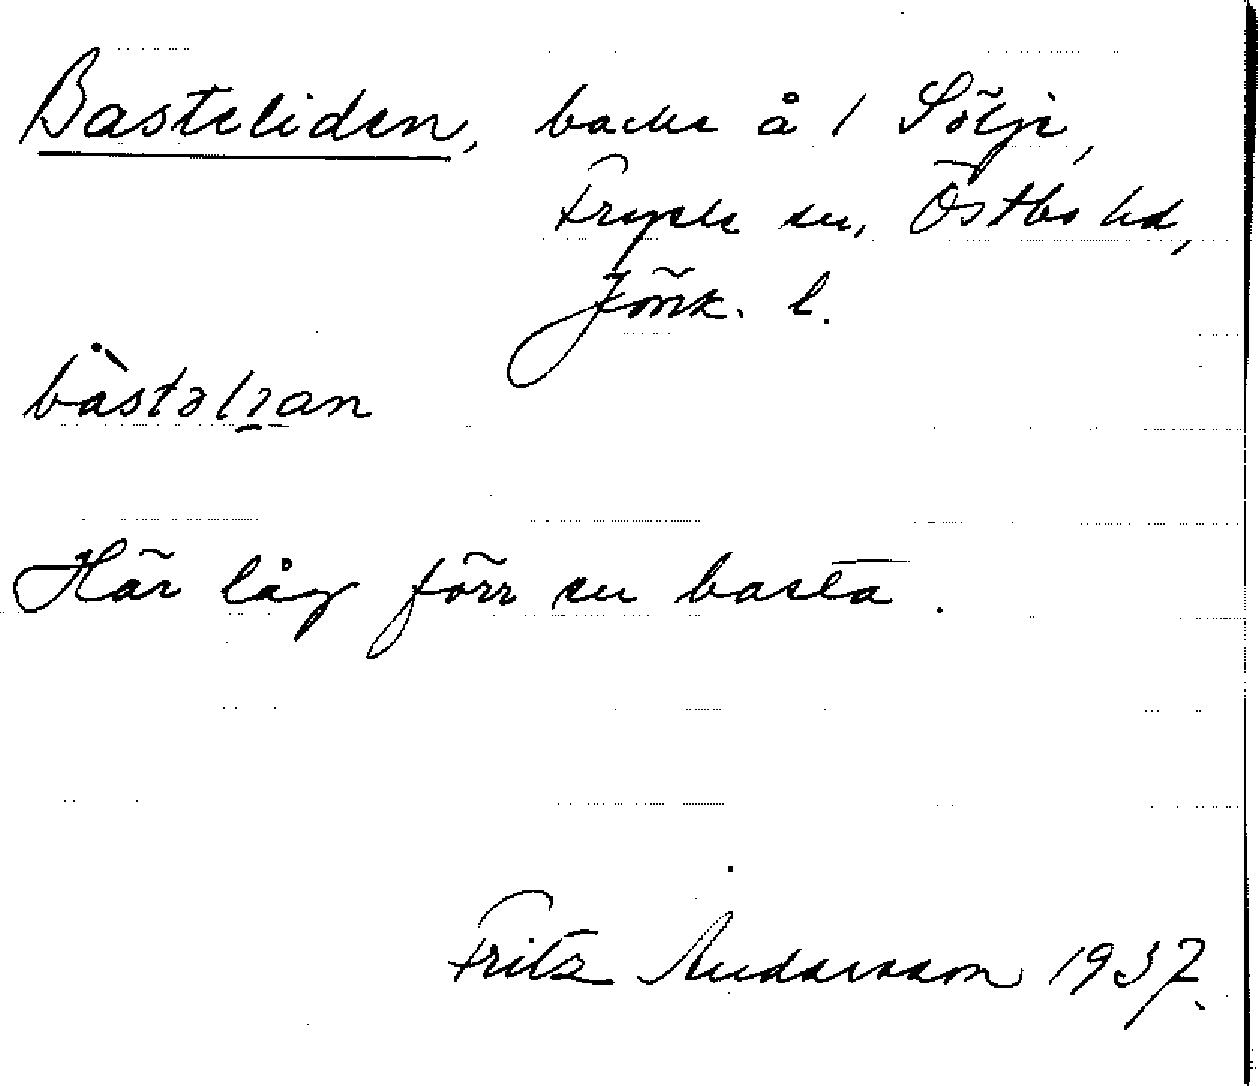 Basteliden, backe å 1 Sölje,
Fryele sn, Östbo hd,
Jönk. l.
bàstəlıan
Här låg förr en basta.
Fritz Andersson 1937.